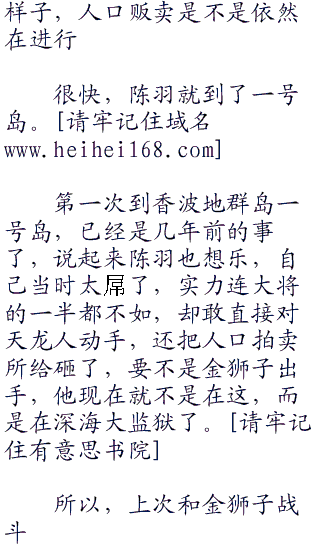 样子，人口贩卖是不是依然
在进行
很快，陈羽就到了一号
岛。[请牢记住域名
www.heihei168.com]
第一次到香波地群岛一
号岛，已经是几年前的事
了，说起来陈羽也想乐，自
己当时太屌了，实力连大将
的一半都不如，却敢直接对
天龙人动手，还把人口拍卖
所给砸了，要不是金狮子出
手，他现在就不是在这，而
是在深海大监狱了。[请牢记
住有意思书院]
所以，上次和金狮子战
斗